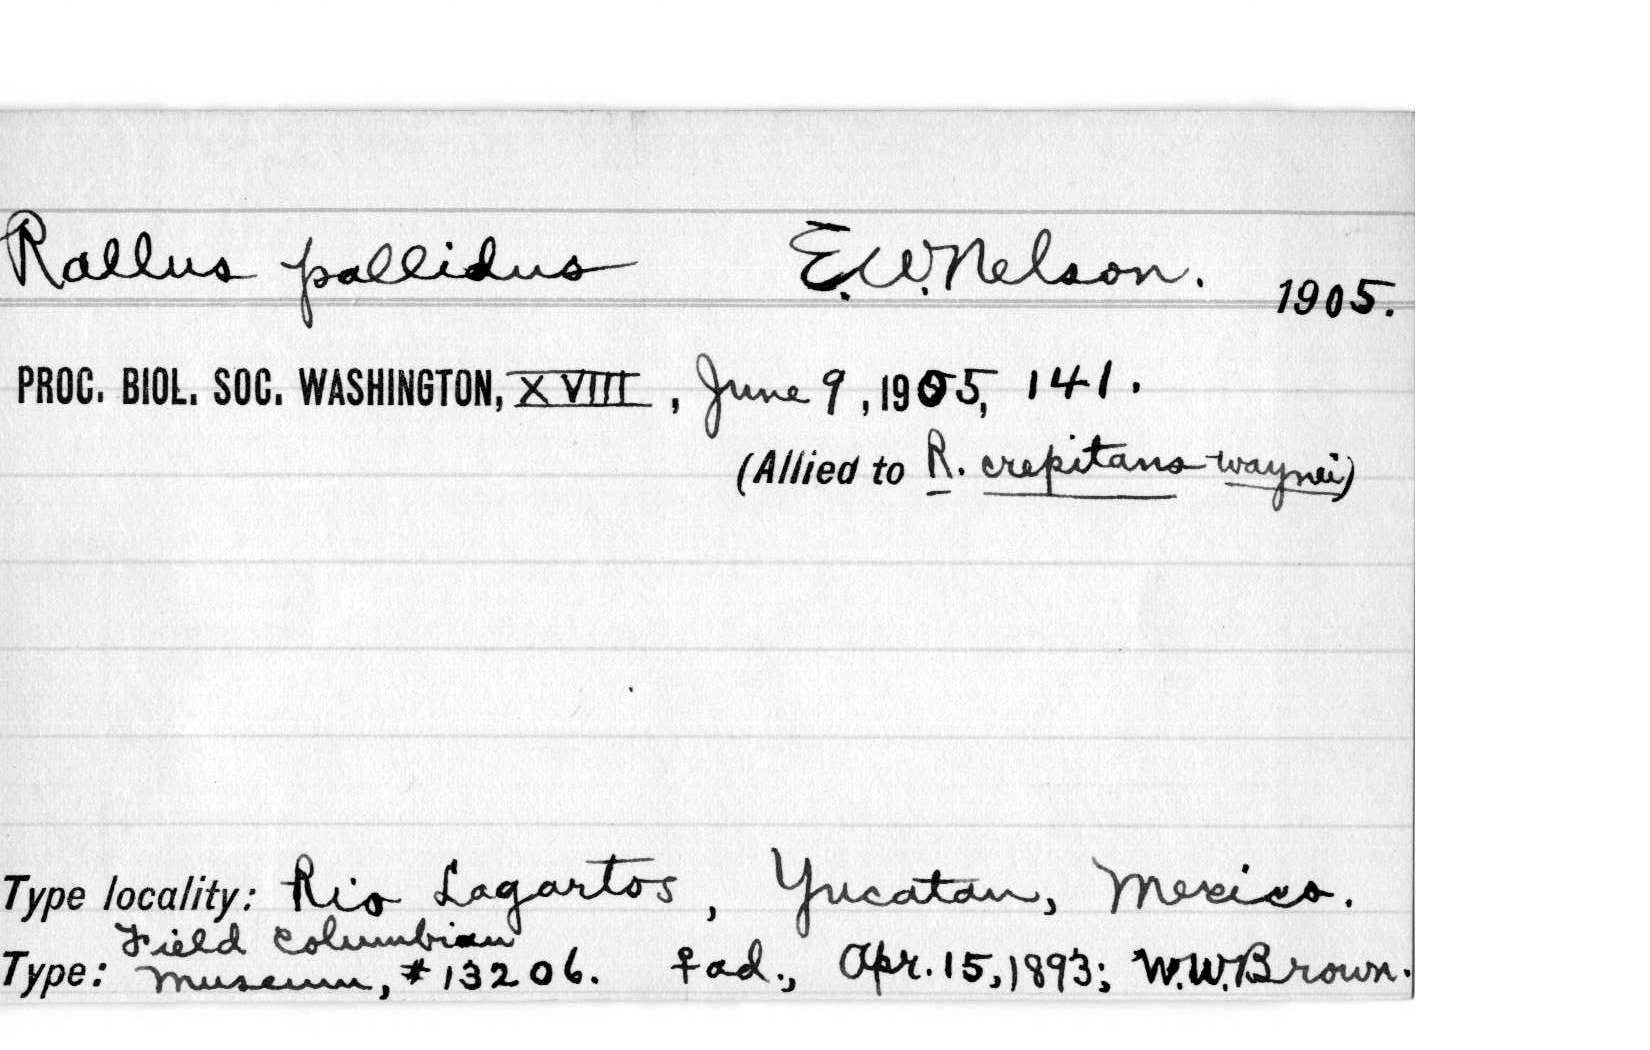 Rallus pallidus E.W.Nelson. 1905.
PROC. BIOL. SOC. WASHINGTON, XVIII, June 9, 1905, 141.
(Allied to R. crepitans waynei)
Type locality: Rio Lagartos, Yucatan, Mexico.
Field Columbian
Type: Museum, #13206. ♀ad., Apr. 15, 1893; W.W.Brown.